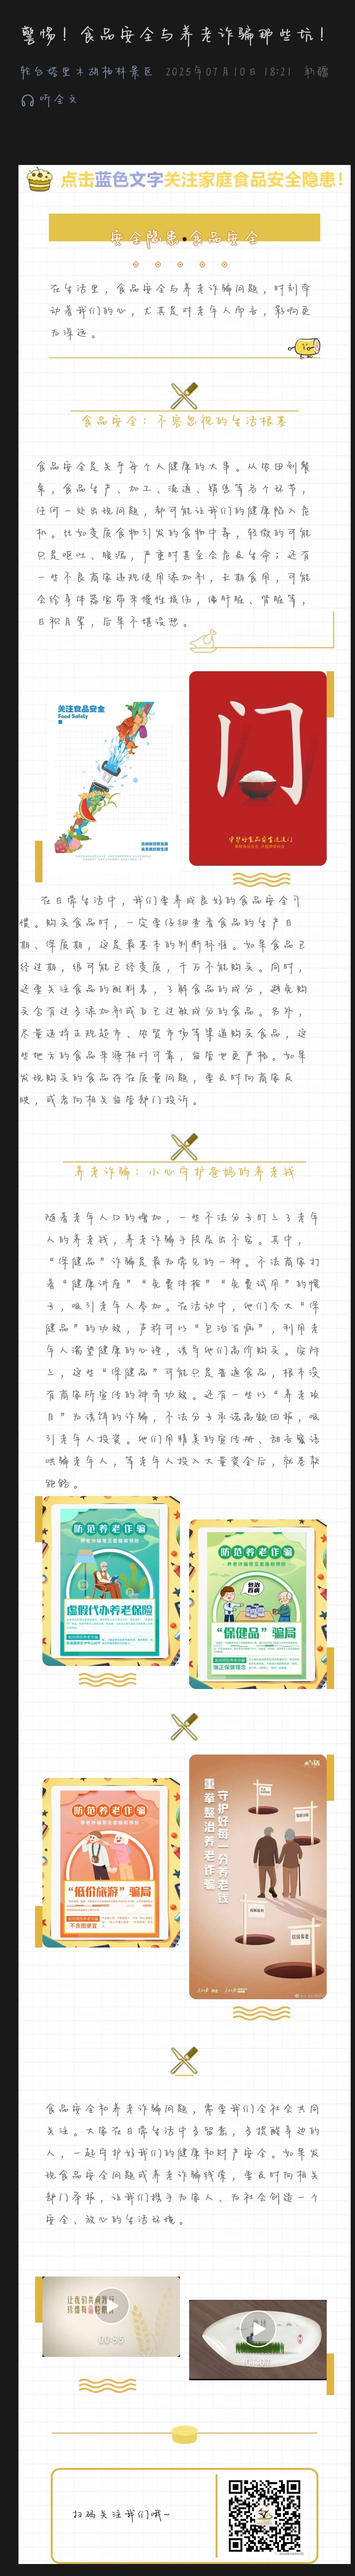 警惕！食品安全与养老诈骗那些坑！
轮台塔里木胡杨林景区 2025年07月10日 18:21 新疆
听全文
点击蓝色文字关注家庭食品安全隐患！
安全隐患•食品安全
在生活里，食品安全与养老诈骗问题，时刻牵
动着我们的心，尤其是对老年人而言，影响更
为深远。
食品安全：不容忽视的生活根基
食品安全是关乎每个人健康的大事。从农田到餐
桌，食品生产、加工、流通、销售等各个环节，
任何一处出现问题，都可能让我们的健康陷入危
机。比如变质食物引发的食物中毒，轻微的可能
只是呕吐、腹泻，严重时甚至会危及生命；还有
一些不良商家违规使用添加剂，长期食用，可能
会给身体器官带来慢性损伤，像肝脏、肾脏等，
日积月累，后果不堪设想。
关注食品安全
Food Safety
门
在日常生活中，我们要养成良好的食品安全习
惯。购买食品时，一定要仔细查看食品的生产日
期、保质期，这是最基本的判断标准。如果食品已
经过期，很可能已经变质，千万不能购买。同时，
还要关注食品的配料表，了解食品的成分，避免购
买含有过多添加剂或自己过敏成分的食品。另外，
尽量选择正规超市、农贸市场等渠道购买食品，这
些地方的食品来源相对可靠，监管也更严格。如果
发现购买的食品存在质量问题，要及时向商家反
映，或者向相关监管部门投诉。
养老诈骗：小心守护爸妈的养老钱
随着老年人口的增加，一些不法分子盯上了老年
人的养老钱，养老诈骗手段层出不穷。其中，
“保健品”诈骗是最为常见的一种。不法商家打
着“健康讲座”“免费体检”“免费试用”的幌
子，吸引老年人参加。在活动中，他们夸大“保
健品”的功效，声称可以“包治百病”，利用老
年人渴望健康的心理，诱导他们高价购买。实际
上，这些“保健品”可能只是普通食品，根本没
有商家所宣传的神奇功效。还有一些以“养老项
目”为诱饵的诈骗，不法分子承诺高额回报，吸
引老年人投资。他们用精美的宣传册、甜言蜜语
哄骗老年人，等老年人投入大量资金后，就卷款
跑路。
防范养老诈骗
虚假代办养老保险
防范养老诈骗
包治百病
“保健品”骗局
防范养老诈骗
“低价旅游”骗局
不贪图便宜
守护好每一分养老钱
重拳整治养老诈骗
食品安全和养老诈骗问题，需要我们全社会共同
关注。大家在日常生活中多留意，多提醒身边的
人，一起守护好我们的健康和财产安全。如果发
现食品安全问题或养老诈骗线索，要及时向相关
部门举报，让我们携手为家人、为社会创造一个
安全、放心的生活环境。
00:55
扫码关注我们哦~